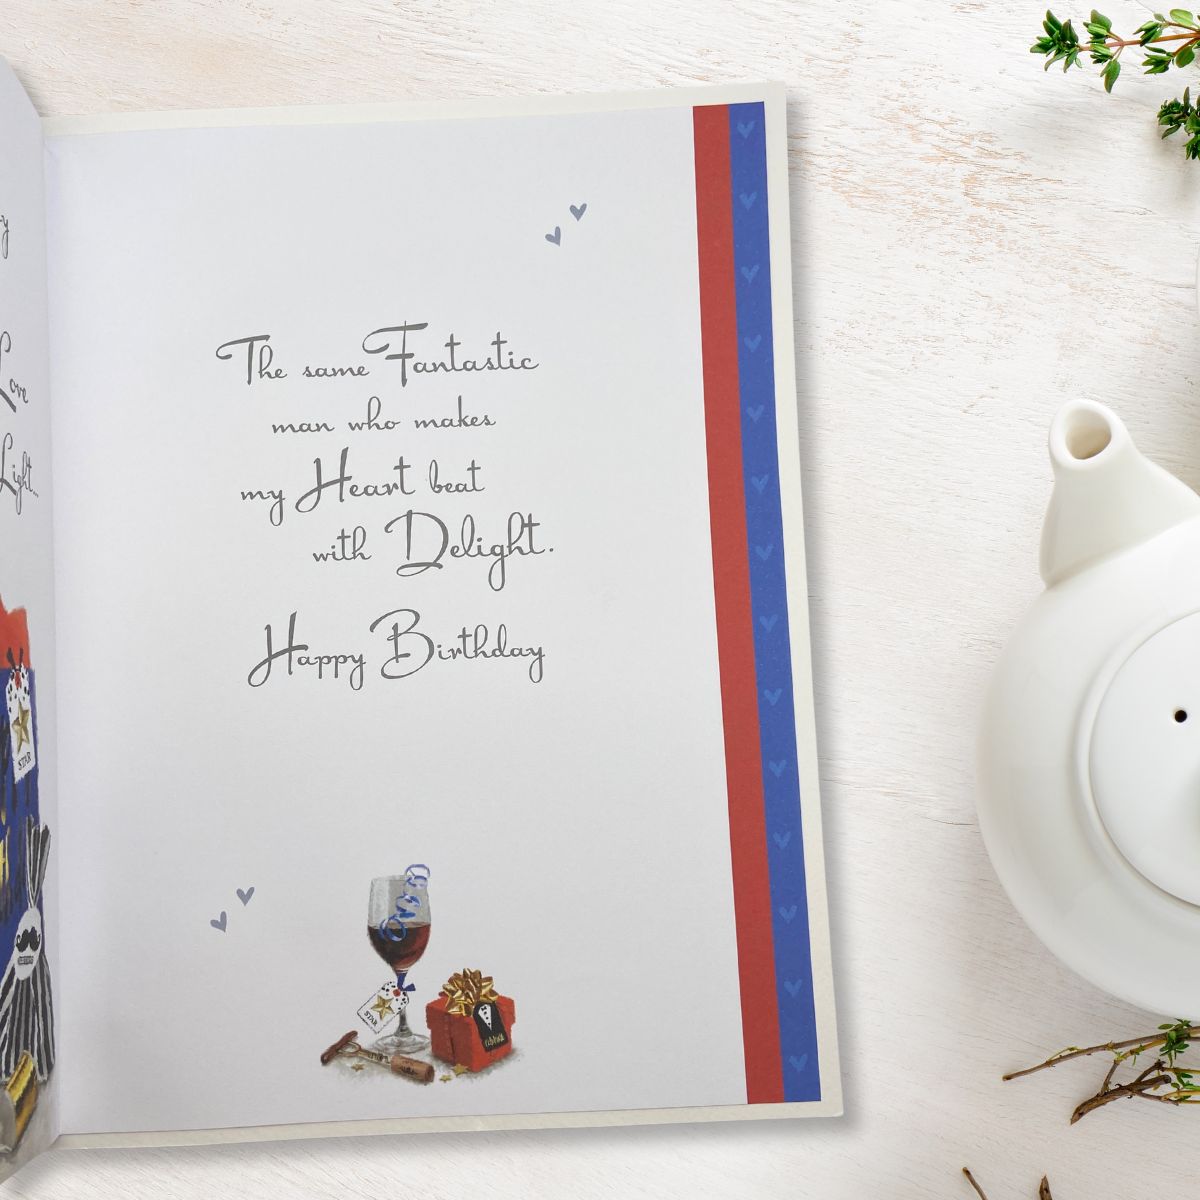 Love
Light...
The same Fantastic
man who makes
my Heart beat
with Delight.
Happy Birthday
STAR
STAR